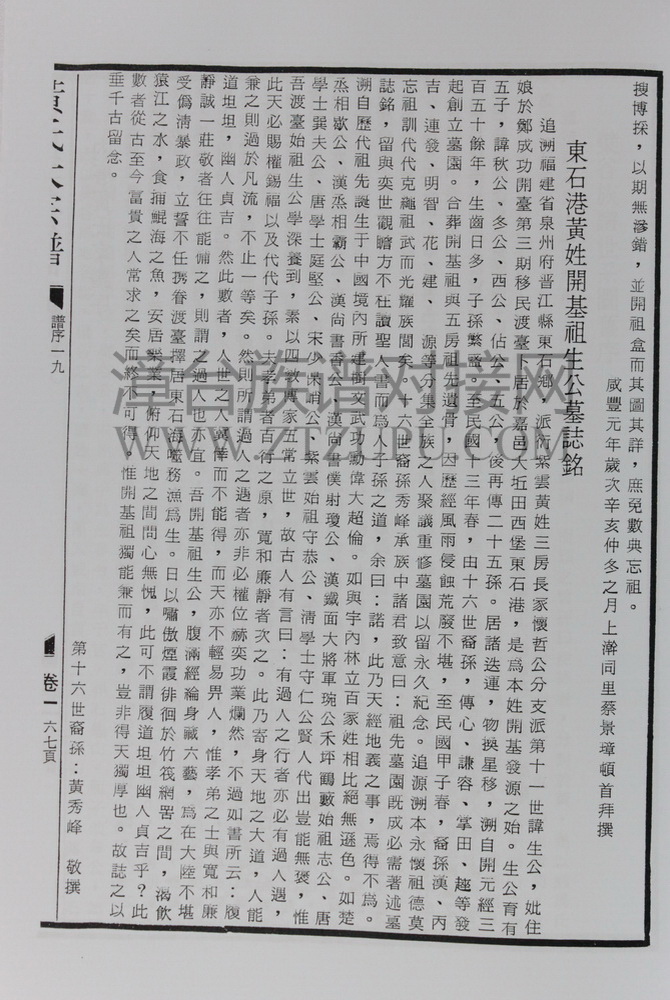 搜博採，以期無滲錯，並開祖盒而其圖其詳，庶免數典忘祖。
咸豐元年歲次辛亥仲冬之月上澣同里蔡景璋頓首拜撰
東石港黃姓開基祖生公墓誌銘
追溯福建省泉州府晋江縣東石鄉，派衍紫雲黃姓三房長家懷哲公分支派第十一世諱生公，妣住
娘於鄭成功開臺第三期移民渡臺卜居於嘉邑大坵田西堡東石港，是為本姓開基發源之始。生公育有
五子，諱秋公、冬公、西公、佔公、五公，後再傳二十五孫。居諸迭運，物換星移，溯自開元經三
百五十餘年，生齒日多，子孫繁衍。至民國十三年春，由十六世裔孫，傳心、謙容、掌田、趖等發
起創立墓園。合葬開基祖與五房祖先遺骨，因歷經風雨侵蝕荒廢不堪，至民國甲子春，裔孫漢、丙
吉、連發、明智、花、建、源等分集全族之人聚議重修墓園以留永久紀念。追源溯本永懷祖德莫
忘祖訓代代克繩祖武而光耀族閭矣。十六世裔孫秀峰承族中諸君致意曰：祖先墓園既成必需著述墓
誌銘，留與奕世觀瞻方不枉讀聖人書而為人子孫之道，余曰：諾，此乃天經地義之事，焉得不為。
溯自歷代祖先誕生于中國境內所建樹文武功勳偉大超倫。如與宇內林立百家姓相比絕無遜色。如楚
烝相歇公、漢烝相霸公、漢尚書香公、漢尚書僕射瓊公、漢鐵面大將軍琬公禾坪鶴數始祖志公、唐
學士巽夫公、唐學士庭堅公、宋少保峭公、紫雲始祖守恭公、清學士守仁公賢人代出豈能無褒，惟
吾渡臺始祖生公學深養到，素以四教專家五常立世，故古人有言曰：有過人之行者亦必有過人遇，
此天必賜權錫福以及代代子孫。夫孝弟者百行之原，寬和廉靜者次之。此乃寄身天地之大道，人能
兼之則過於凡流，不止一等矣。然則所謂過人之過者亦非必權位赫奕功業爛然，不過如書所云：履
道坦坦，幽人貞吉。然此數者，人世之人冀倖而不能得，而天亦不輕易畀人，惟孝弟之士與寬和廉
靜誠一莊敬者往往能備之，則謂之過人也亦宜。吾開基祖生公，腹滿經綸身藏六藝，為在大陸不堪
受偽清暴政，立誓不任携眷渡臺擇居東石海曦務漁為生。日以嘯傲煙霞徘徊於竹筏網罟之間，渴飲
猿江之水，食捕鯤海之魚，安居樂業，俯仰天地之間問心無愧，此可不謂履道坦坦幽人貞吉乎？此
數者從古至今富貴之人常求之矣而終不可得。惟開基祖獨能兼而有之，豈非得天獨厚也。故誌之以
垂千古留念。
第十六世裔孫：黃秀峰　敬撰
譜序一九
卷一　六七頁
漳台族谱对接网
WWW.ZTZUPU.COM